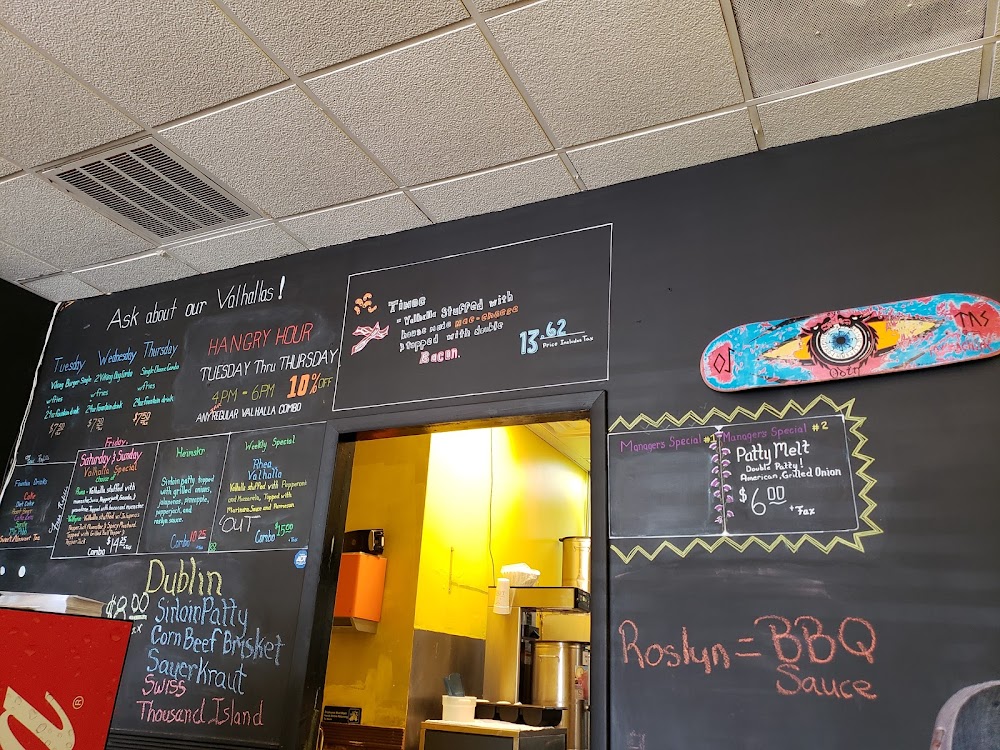 Ask about our Valhallas!
Tuesday
Viking Burger Single
w/fries
24oz Fountain drink
$7.50
Wednesday
2 Viking Dog Combo
w/fries
24oz Fountain drink
$7.50
Thursday
Single Cheese Combo
w/fries
24oz Fountain drink
$7.50
HANGRY HOUR
TUESDAY Thru THURSDAY
4PM - 6PM 10% OFF
ANY REGULAR VALHALLA COMBO
Timoe
- Valhalla Stuffed with
house made mac-cheese
topped with double
Bacon.
13.62
Price Includes Tax
Managers Special #1
Managers Special #2
Patty Melt
Double Patty!
American, Grilled Onion
$6.00
+Tax
Fountain Drinks
Coke
Diet Coke
Sweet & Unsweet Tea
Friday,
Saturday & Sunday
Valhalla Special
choice of
Combo $14
Heimster
Sirloin patty topped
with grilled onions,
jalapenos, pineapple,
pepperjack, and
roslyn sauce.
Combo 10.25
Weekly Special
Rhea
Valhalla
Valhalla stuffed with Pepperoni
and Mozzarella, Topped with
Marinara Sauce and Parmesan
"OUT"
Combo $15.00
$8.00
Dublin
Sirloin Patty
Corn Beef Brisket
Sauerkraut
Swiss
Thousand Island
Roslyn = BBQ
Sauce